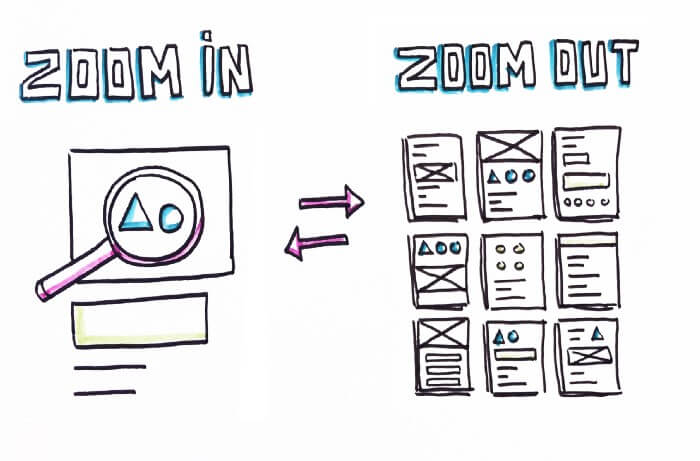 ZOOM IN
ZOOM OUT